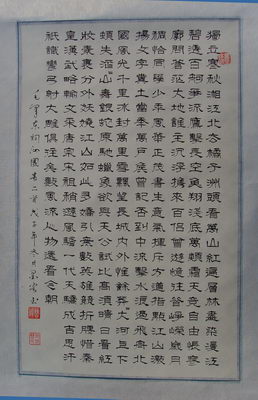 獨立寒秋湘江北去橘子洲頭看萬山紅遍層林盡染漫江
碧透百舸爭流鷹擊長空魚翔淺底萬類霜天競自由悵寥
廓問蒼茫大地誰主沉浮攜來百侶曾遊憶往昔崢嶸歲月
稠恰同學少年風華正茂書生意氣揮斥方遒指點江山激
揚文字糞土當年萬戶侯曾記否到中流擊水浪遏飛舟北
國風光千里冰封萬里雪飄望長城內外惟餘莽莽大河上下
頓失滔滔山舞銀蛇原馳蠟象欲與天公試比高須晴日看紅
妝素裹分外妖嬈江山如此多嬌引無數英雄競折腰惜秦
皇漢武略輸文采唐宗宋祖稍遜風騷一代天驕成吉思汗
祇識彎弓射大雕俱往矣數風流人物還看今朝
毛澤東詞沁園春二首戊子年冬月